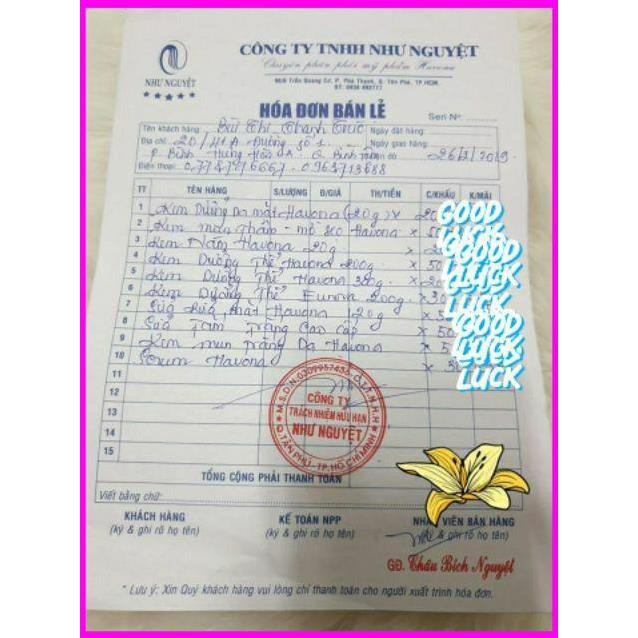 NHƯ NGUYỆT
CÔNG TY TNHH NHƯ NGUYỆT
Chuyên phân phối mỹ phẩm Havona
ĐT: 0938 692777
HÓA ĐƠN BÁN LẺ
Seri Nº
Tên khách hàng Bùi Thị Thanh Trúc Ngày đặt hàng:
Địa chỉ: 20/41A Đường số 1 Ngày giao hàng:
P. Bình Hưng Hòa A. Q Bình Tân 26/3/2019
Điện thoại: 0963713688
TT TÊN HÀNG S/LƯỢNG Đ/GIÁ TH/TIỀN C/KHẤU K/MÃI
1 Kem Dưỡng Da mặt Havona (20g) x
2 Kem mụn thâm - mờ sẹo Havona x
3 Kem Nám Havona 20g x
4 Kem Dưỡng Thể Havona 200g x
5 Kem Dưỡng Thể Havona x
6 Kem Dưỡng Thể 200g x
7 Sữa Rửa Mặt Havona 120g x
8 Sữa Tắm Trắng Cao Cấp x
9 Kem mụn Trắng Da Havona x
10 Serum Havona x
11
12
13
14
15
GOOD
LUCK
GOOD
LUCK
GOOD
LUCK
GOOD
LUCK
M.S.D.N:0309957436-C.T.T.N.H.H
CÔNG TY
TRÁCH NHIỆM HỮU HẠN
NHƯ NGUYỆT
Q.TÂN PHÚ-TP.HỒ CHÍ MINH
TỔNG CỘNG PHẢI THANH TOÁN
Viết bằng chữ:
KHÁCH HÀNG KẾ TOÁN NPP VIÊN BÁN HÀNG
(ký & ghi rõ họ tên) (ký & ghi rõ họ tên) & ghi rõ họ tên)
GĐ. Châu Bích Nguyệt
* Lưu ý: Xin Quý khách hàng vui lòng chỉ thanh toán cho người xuất trình hóa đơn.